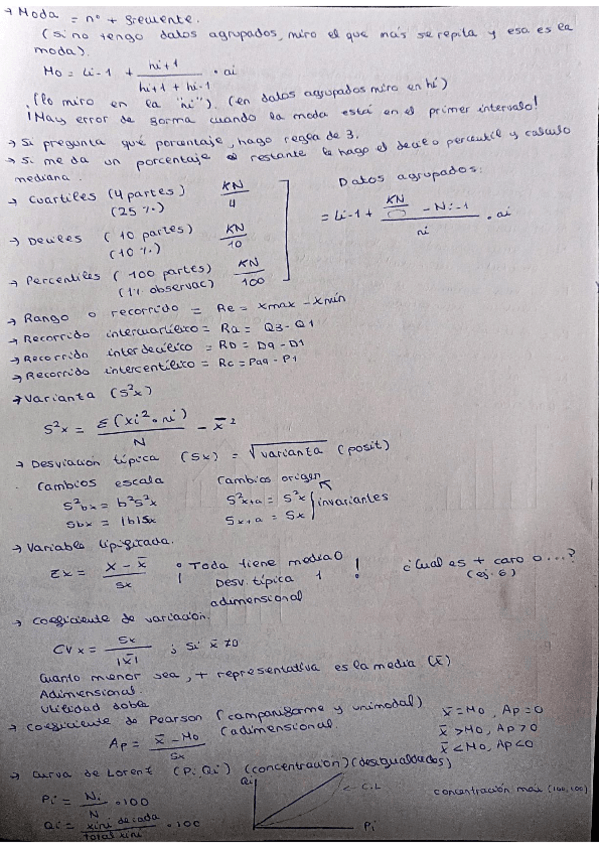 → Moda = nº + frecuente.
(si no tengo datos agrupados, miro el que más se repita y esa es la
moda).
Mo = Li-1 + hi+1 / (hi+1 + hi-1) · ai
(lo miro en la "ni") (en datos agrupados miro en hi)
¡Hay error de forma cuando la moda está en el primer intervalo!
→ Si pregunta qué porcentaje, hago regla de 3.
→ Si me da un porcentaje restante le hago el decilo percentil y calculo
mediana.
→ Cuartiles (4 partes) KN/4
(25%)
Datos agrupados:
→ Deciles (10 partes) KN/10
(10%)
= Li-1 + (KN/▢ - Ni-1) / ni · ai
→ Percentiles (100 partes) KN/100
(1% observac)
→ Rango o recorrido = Re = xmax - xmín
→ Recorrido intercuartílico = Ra = Q3 - Q1
→ Recorrido interdecílico = RD = D9 - D1
→ Recorrido intercentílico = Rc = P99 - P1
→ Varianta (S²x)
S²x = Σ(xi² · ni) / N - x̄²
→ Desviación típica (Sx) = √varianta (posit)
Cambios escala Cambios origen
S²bx = b²S²x S²x+a = S²x
Sbx = |b|Sx Sx+a = Sx
invariantes
→ Variable tipificada.
Zx = (x - x̄) / Sx
¡Toda tiene media 0
Desv. típica 1 !
adimensional
¿Cual es + caro o...?
(ej. 6)
→ Coeficiente de variación.
CVx = Sx / |x̄| ; si x̄ ≠ 0
Cuanto menor sea, + representativa es la media (x̄)
Adimensional.
Utilidad doble
→ Coeficiente de Pearson (campaniforme y unimodal)
Ap = (x̄ - Mo) / Sx (adimensional.
x̄ = Mo, Ap = 0
x̄ > Mo, Ap > 0
x̄ < Mo, Ap < 0
→ Curva de Lorent (Pi, Qi) (concentración) (desigualdades)
Pi = Ni / N · 100
Qi = xini de cada / total xini · 100
Qi
← C.L
Pi
concentración max (100,100)